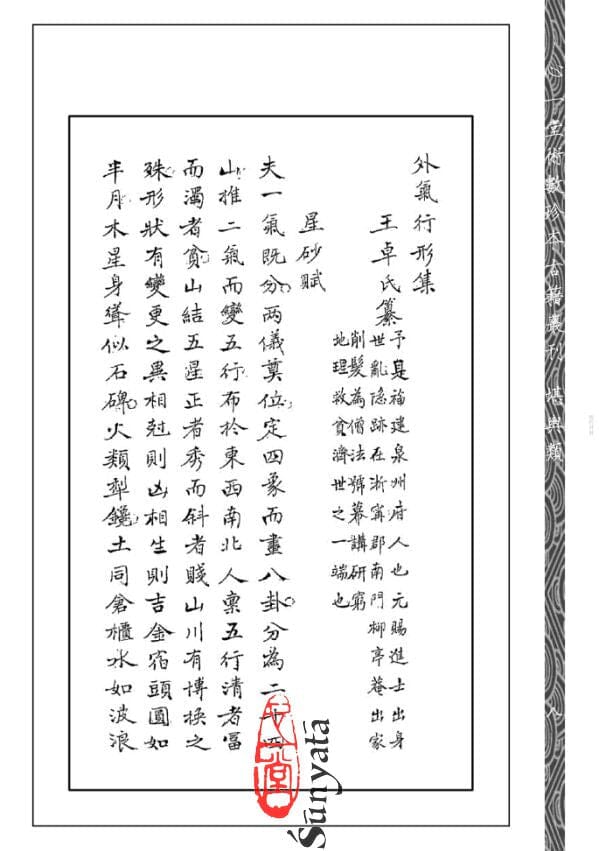 心一堂術數珍本古籍叢刊 堪輿類
八
外氣行形集
王卓氏纂
予是福建泉州府人也元賜進士出身
世亂隐跡在浙寧郡南門柳亭菴出家
削髮為僧法號幕講研窮
地理救貧濟世之一端也
星砂賦
夫一氣既分兩儀奠位定四象而畫八卦分為二十四
山推二氣而變五行布於東西南北人禀五行清者冨
而濁者貧山結五星正者秀而斜者賤山川有博換之
殊形狀有變更之異相尅則凶相生則吉金宿頭圓如
半月木星身聳似石碑火類犁鑱土同倉櫃水如波浪
心一堂
Śūnyatā